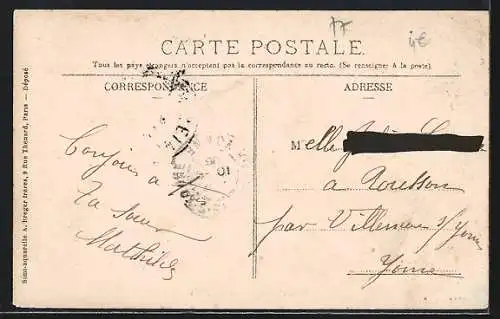 77
4€
CARTE POSTALE.
Tous les pays étrangers n'acceptent pas la correspondance au recto. (Se renseigner à la poste).
CORRESPONDANCE
ADRESSE
Simi-aquarelle A. Breger frères, 9 Rue Thénard, Paris — Déposé
Bonjour à
Ta sœur
Mathilde
Melle
à Rousson
par Villeneuve s/Yonne
Yonne